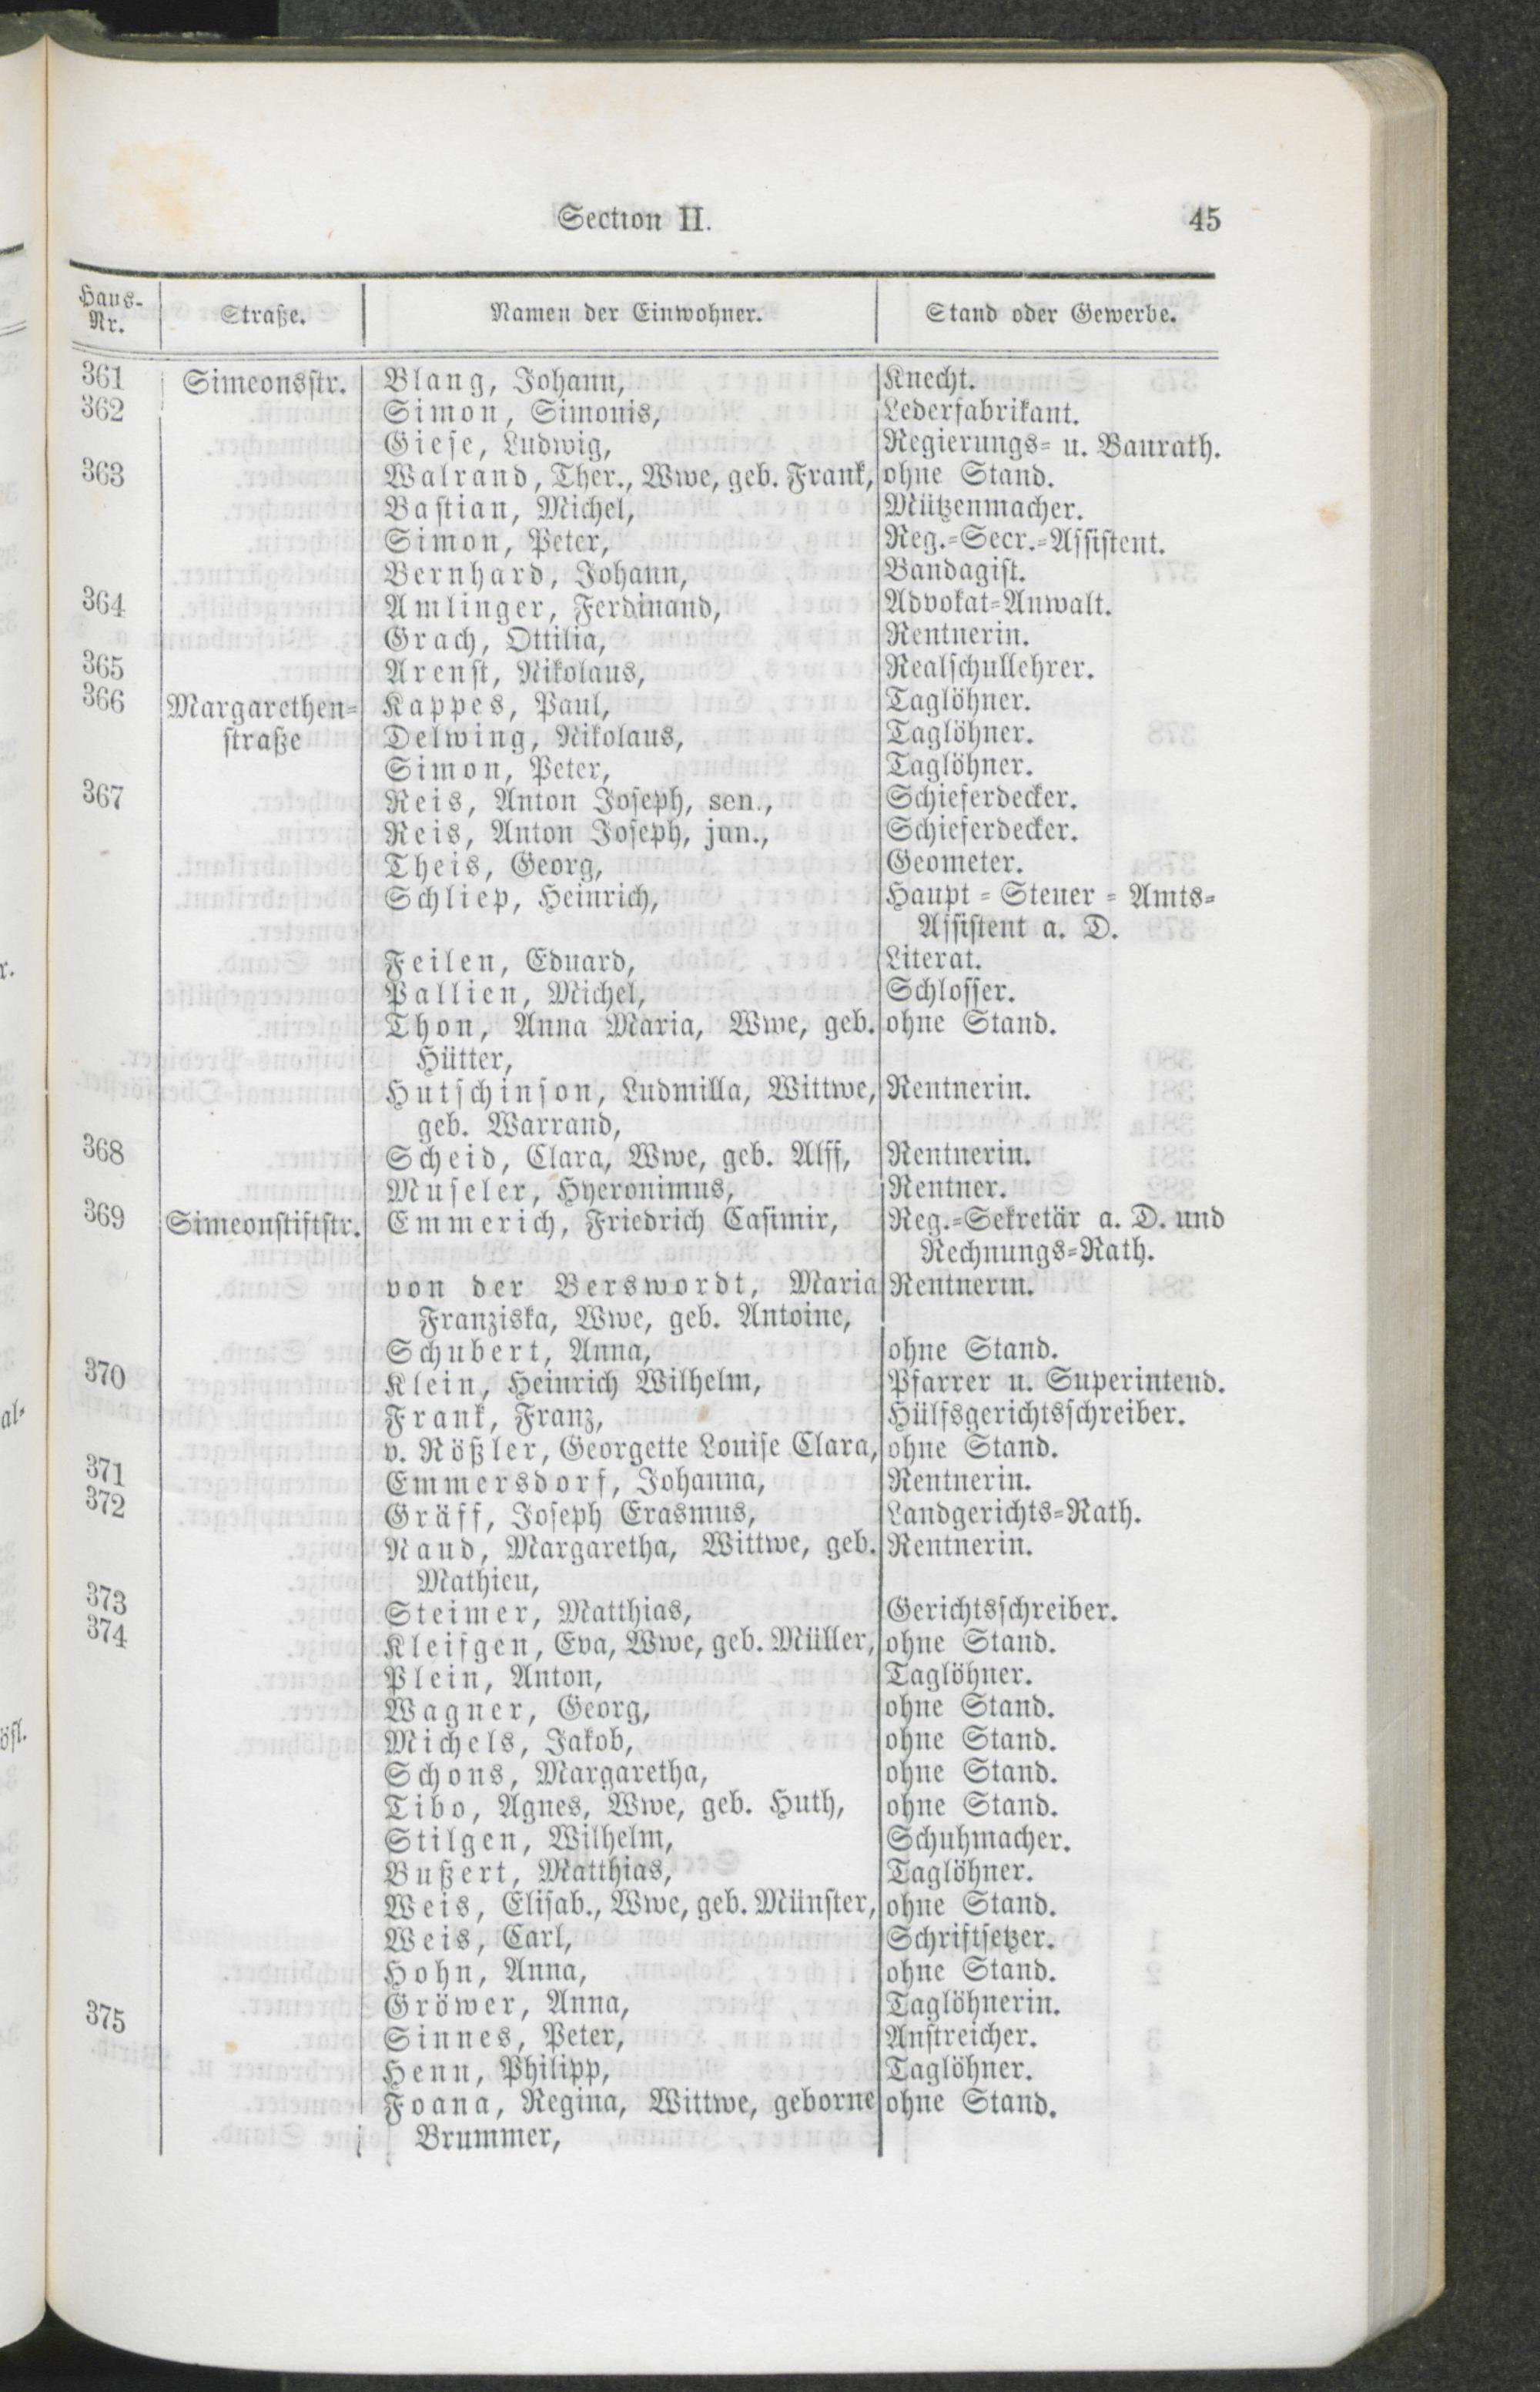 Section II. 45
Haus-Nr. Straße. Namen der Einwohner. Stand oder Gewerbe.
361 Simeonsstr. Blang, Johann, Knecht.
362 Simon, Simonis, Lederfabrikant.
Giese, Ludwig, Regierungs- u. Baurath.
363 Walrand, Ther., Wwe, geb. Frank, ohne Stand.
Bastian, Michel, Mützenmacher.
Simon, Peter, Reg.-Secr.-Assistent.
Bernhard, Johann, Bandagist.
364 Amlinger, Ferdinand, Advokat-Anwalt.
Grach, Ottilia, Rentnerin.
365 Arenst, Nikolaus, Realschullehrer.
366 Margarethen- Kappes, Paul, Taglöhner.
straße Delwing, Nikolaus, Taglöhner.
Simon, Peter, Taglöhner.
367 Reis, Anton Joseph, sen., Schieferdecker.
Reis, Anton Joseph, jun., Schieferdecker.
Theis, Georg, Geometer.
Schliep, Heinrich, Haupt-Steuer-Amts-
Assistent a. D.
Feilen, Eduard, Literat.
Pallien, Michel, Schlosser.
Thon, Anna Maria, Wwe, geb. ohne Stand.
Hütter,
Hutschinson, Ludmilla, Wittwe, Rentnerin.
geb. Warrand,
368 Scheid, Clara, Wwe, geb. Alff, Rentnerin.
Museler, Hyeronimus, Rentner.
369 Simeonstiftstr. Emmerich, Friedrich Casimir, Reg.-Sekretär a. D. und
Rechnungs-Rath.
von der Berswordt, Maria Rentnerin.
Franziska, Wwe, geb. Antoine,
Schubert, Anna, ohne Stand.
370 Klein, Heinrich Wilhelm, Pfarrer u. Superintend.
Frank, Franz, Hülfsgerichtsschreiber.
v. Rößler, Georgette Louise Clara, ohne Stand.
371 Emmersdorf, Johanna, Rentnerin.
372 Gräff, Joseph Erasmus, Landgerichts-Rath.
Naud, Margaretha, Wittwe, geb. Rentnerin.
Mathieu,
373 Steimer, Matthias, Gerichtsschreiber.
374 Kleifgen, Eva, Wwe, geb. Müller, ohne Stand.
Plein, Anton, Taglöhner.
Wagner, Georg, ohne Stand.
Michels, Jakob, ohne Stand.
Schons, Margaretha, ohne Stand.
Tibo, Agnes, Wwe, geb. Huth, ohne Stand.
Stilgen, Wilhelm, Schuhmacher.
Bußert, Matthias, Taglöhner.
Weis, Elisab., Wwe, geb. Münster, ohne Stand.
Weis, Carl, Schriftsetzer.
Hohn, Anna, ohne Stand.
Gröwer, Anna, Taglöhnerin.
375 Sinnes, Peter, Anstreicher.
Henn, Philipp, Taglöhner.
Foana, Regina, Wittwe, geborne ohne Stand.
Brummer,